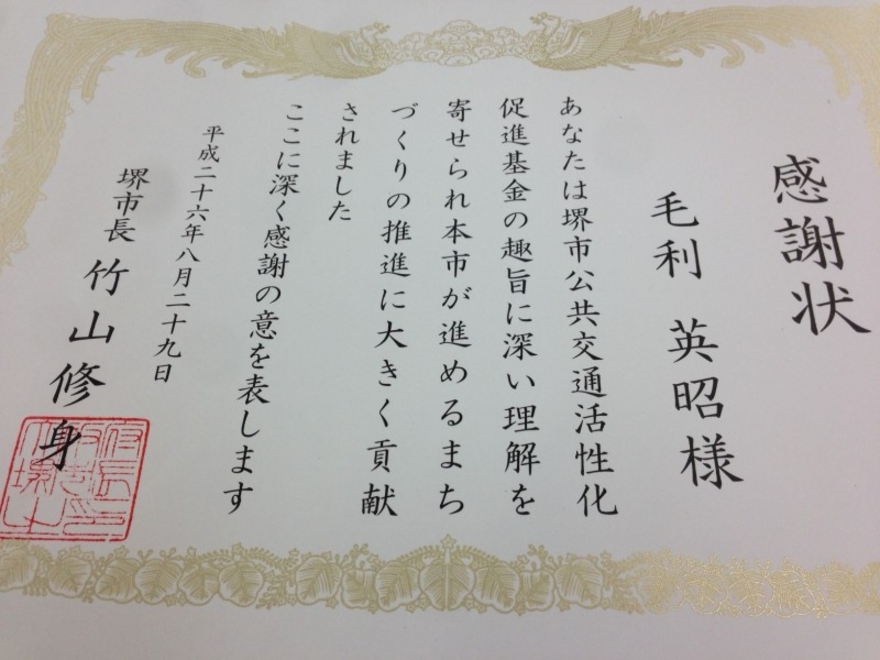 感謝状
毛利 英昭様
あなたは堺市公共交通活性化
促進基金の趣旨に深い理解を
寄せられ本市が進めるまち
づくりの推進に大きく貢献
されました
ここに深く感謝の意を表します
平成二十六年八月二十九日
堺市長 竹山修身